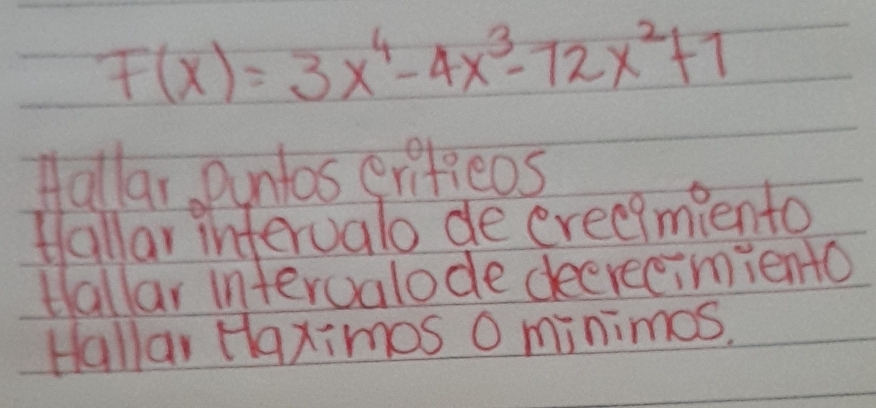 F(x) = 3x⁴ - 4x³ - 12x² + 1
Hallar puntos criticos
Hallar intervalo de crecimiento
Hallar intervalo de decrecimiento
Hallar Maximos o minimos.